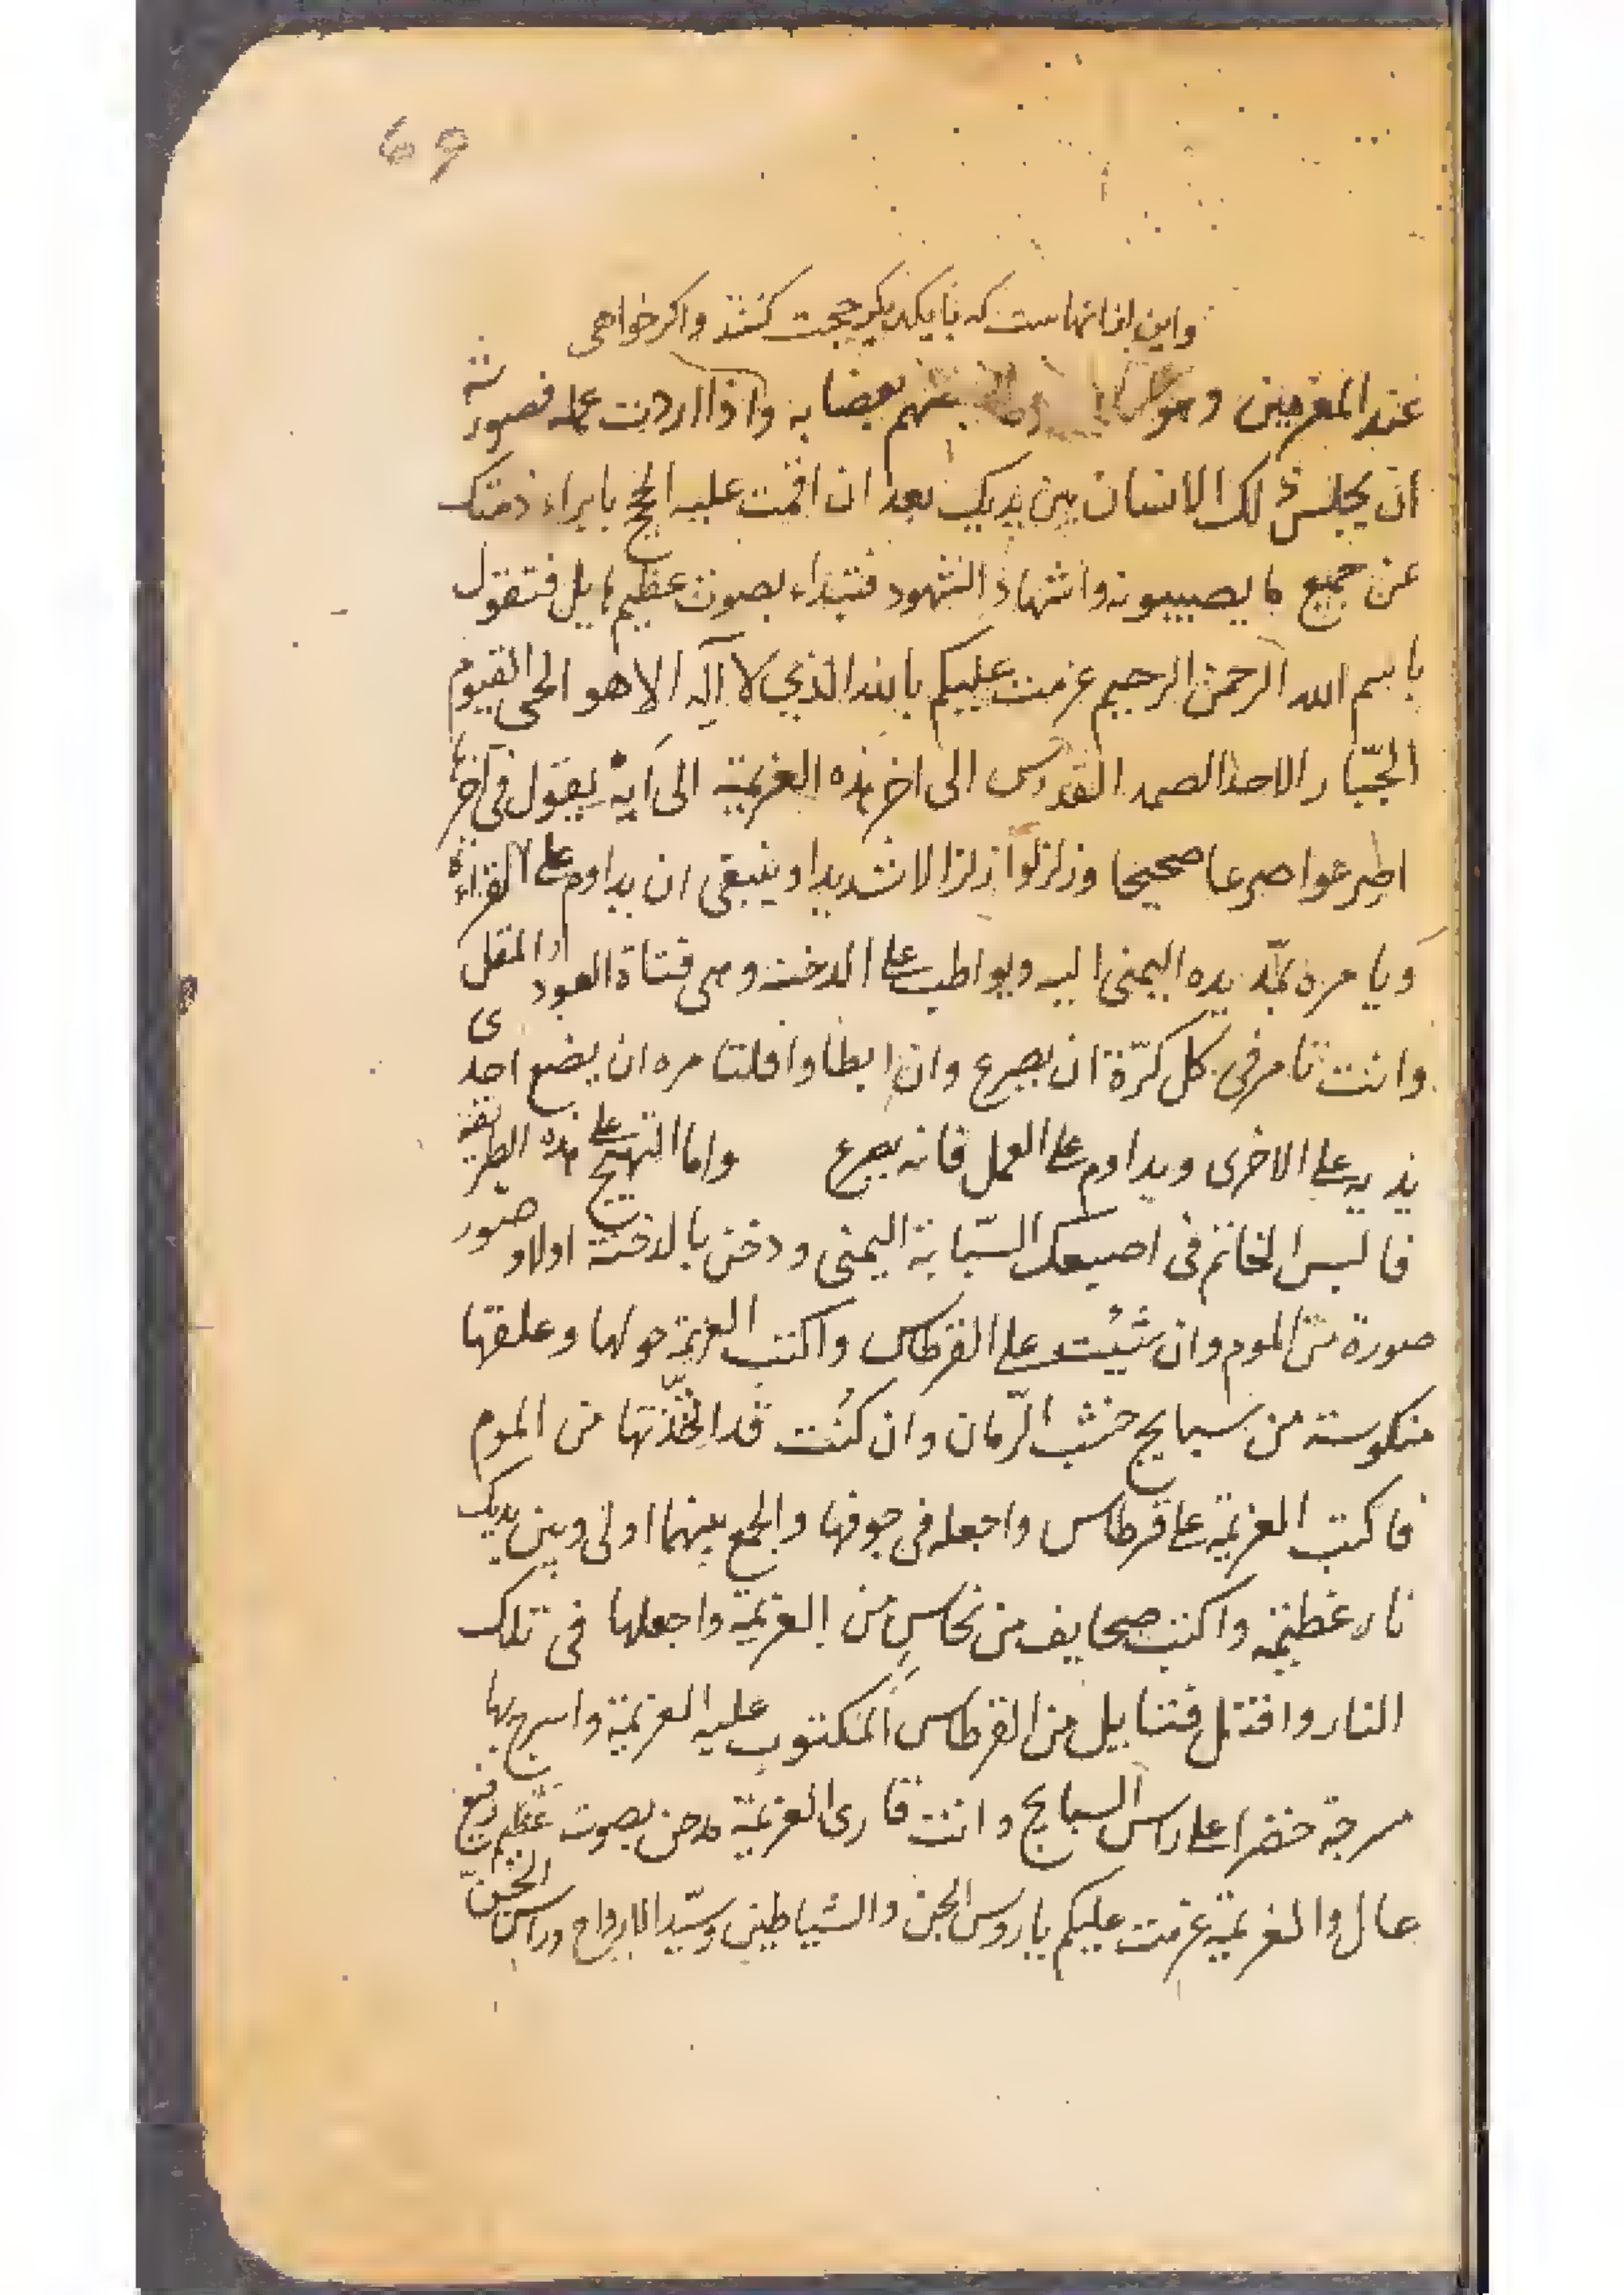 69
واین از انهاست که با یکدیکر حجت کنند واکر خواهی
عند المعزمین وهو عنهم بعضا به واذا اردت عمله فصورته
ان یجلس ذلک الانسان بین یدیک بعد ان اقمت علیه الحجج بابراء ذمتک
عن جمیع ما یصیبونه واشهاد الشهود فتبتداء بصوت عظیم فتقول
باسم الله الرحمن الرحیم عزمت علیکم بالله الذی لا آله الا هو الحی القیوم
الجبّار الاحد الصمد القدوس الی اخر هذه العزیمة الی انه یقول فی آخرها
اصرعوا صرعا صحیحا وزلزلوا زلزالا شدیدا وینبغی ان یداوم علی القراءة
ویامره بمدّ یده الیمنی الیه ویواظب علی الدخنه وهی قتاة العود او المقل
وانت تامر فی کل کرّة ان یصرع وان ابطا وافلتا مره ان یضع احدی
یدیه علی الاخری ویداوم علی العمل فانه یصرع واما التهییج علی هذه الطریقة
فالبس الخاتم فی اصبعک السّبابة الیمنی ودخن بالدخنة اولا وصور
صورة من الموم وان شئت علی القرطاس واکتب العزیمة حولها وعلقها
منکوسة من سبایج خشب الرّمان وان کنت قد اتخذتها من الموم
فاکتب العزیمة علی قرطاس واجعله فی جوفها والجمع بینهما اولی وبین یدیک
نار عظیمة واکتب صحایف من نحاس من العزیمة واجعلها فی تلک
النار وافتل فتایل من القرطاس المکتوب علیه العزیمة واسرج بها
مسرجة خضرا علی راس السبایج وانت قاری العزیمة مدخن بصوت عظیم رفیع
عال والعزیمة عزمت علیکم یا روس الجن والشیاطین وسیّد الارواح وراس الجنّ